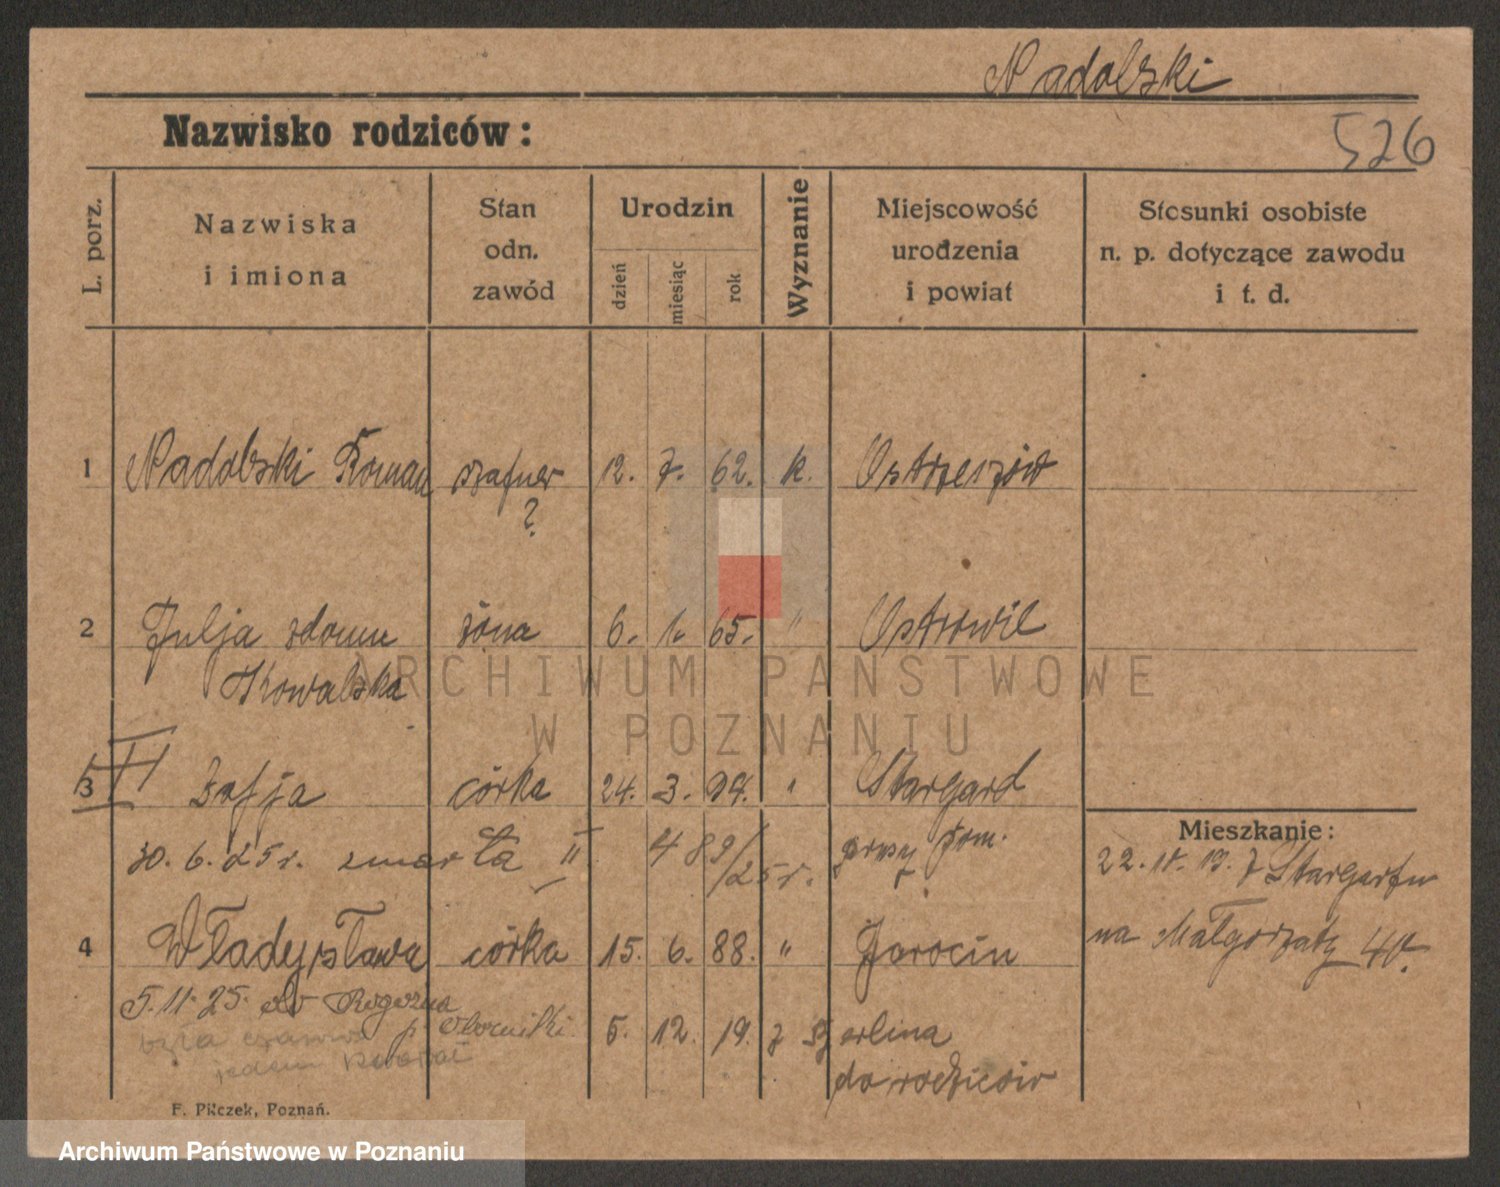 Nadolski
Nazwisko rodziców:
526
L. porz.
Nazwiska
i imiona
Stan
odn.
zawód
Urodzin
dzień
miesiąc
rok
Wyznanie
Miejscowość
urodzenia
i powiat
Stosunki osobiste
n. p. dotyczące zawodu
i t. d.
1 Nadolski Roman szafner 12. 7. 62. k. Ostrzeszów
?
2 Julja zdomu żona 6. 1. 65. " Ostrowil
Kowalska
ARCHIWUM PAŃSTWOWE
W POZNANIU
3 Zofja córka 24. 3. 94. " Stargard
30. 6. 25 r. zmarła II 489/25 r. pom.
Mieszkanie:
22. 19. z Stargardu
4 Władysława córka 15. 6. 88. " Jarocin
na Małgorzaty 40.
5. 11. 25. do Rogoźna
p. Oborniki 5. 12. 19. z Berlina
była
do rodziców
F. Pilczek, Poznań.
Archiwum Państwowe w Poznaniu